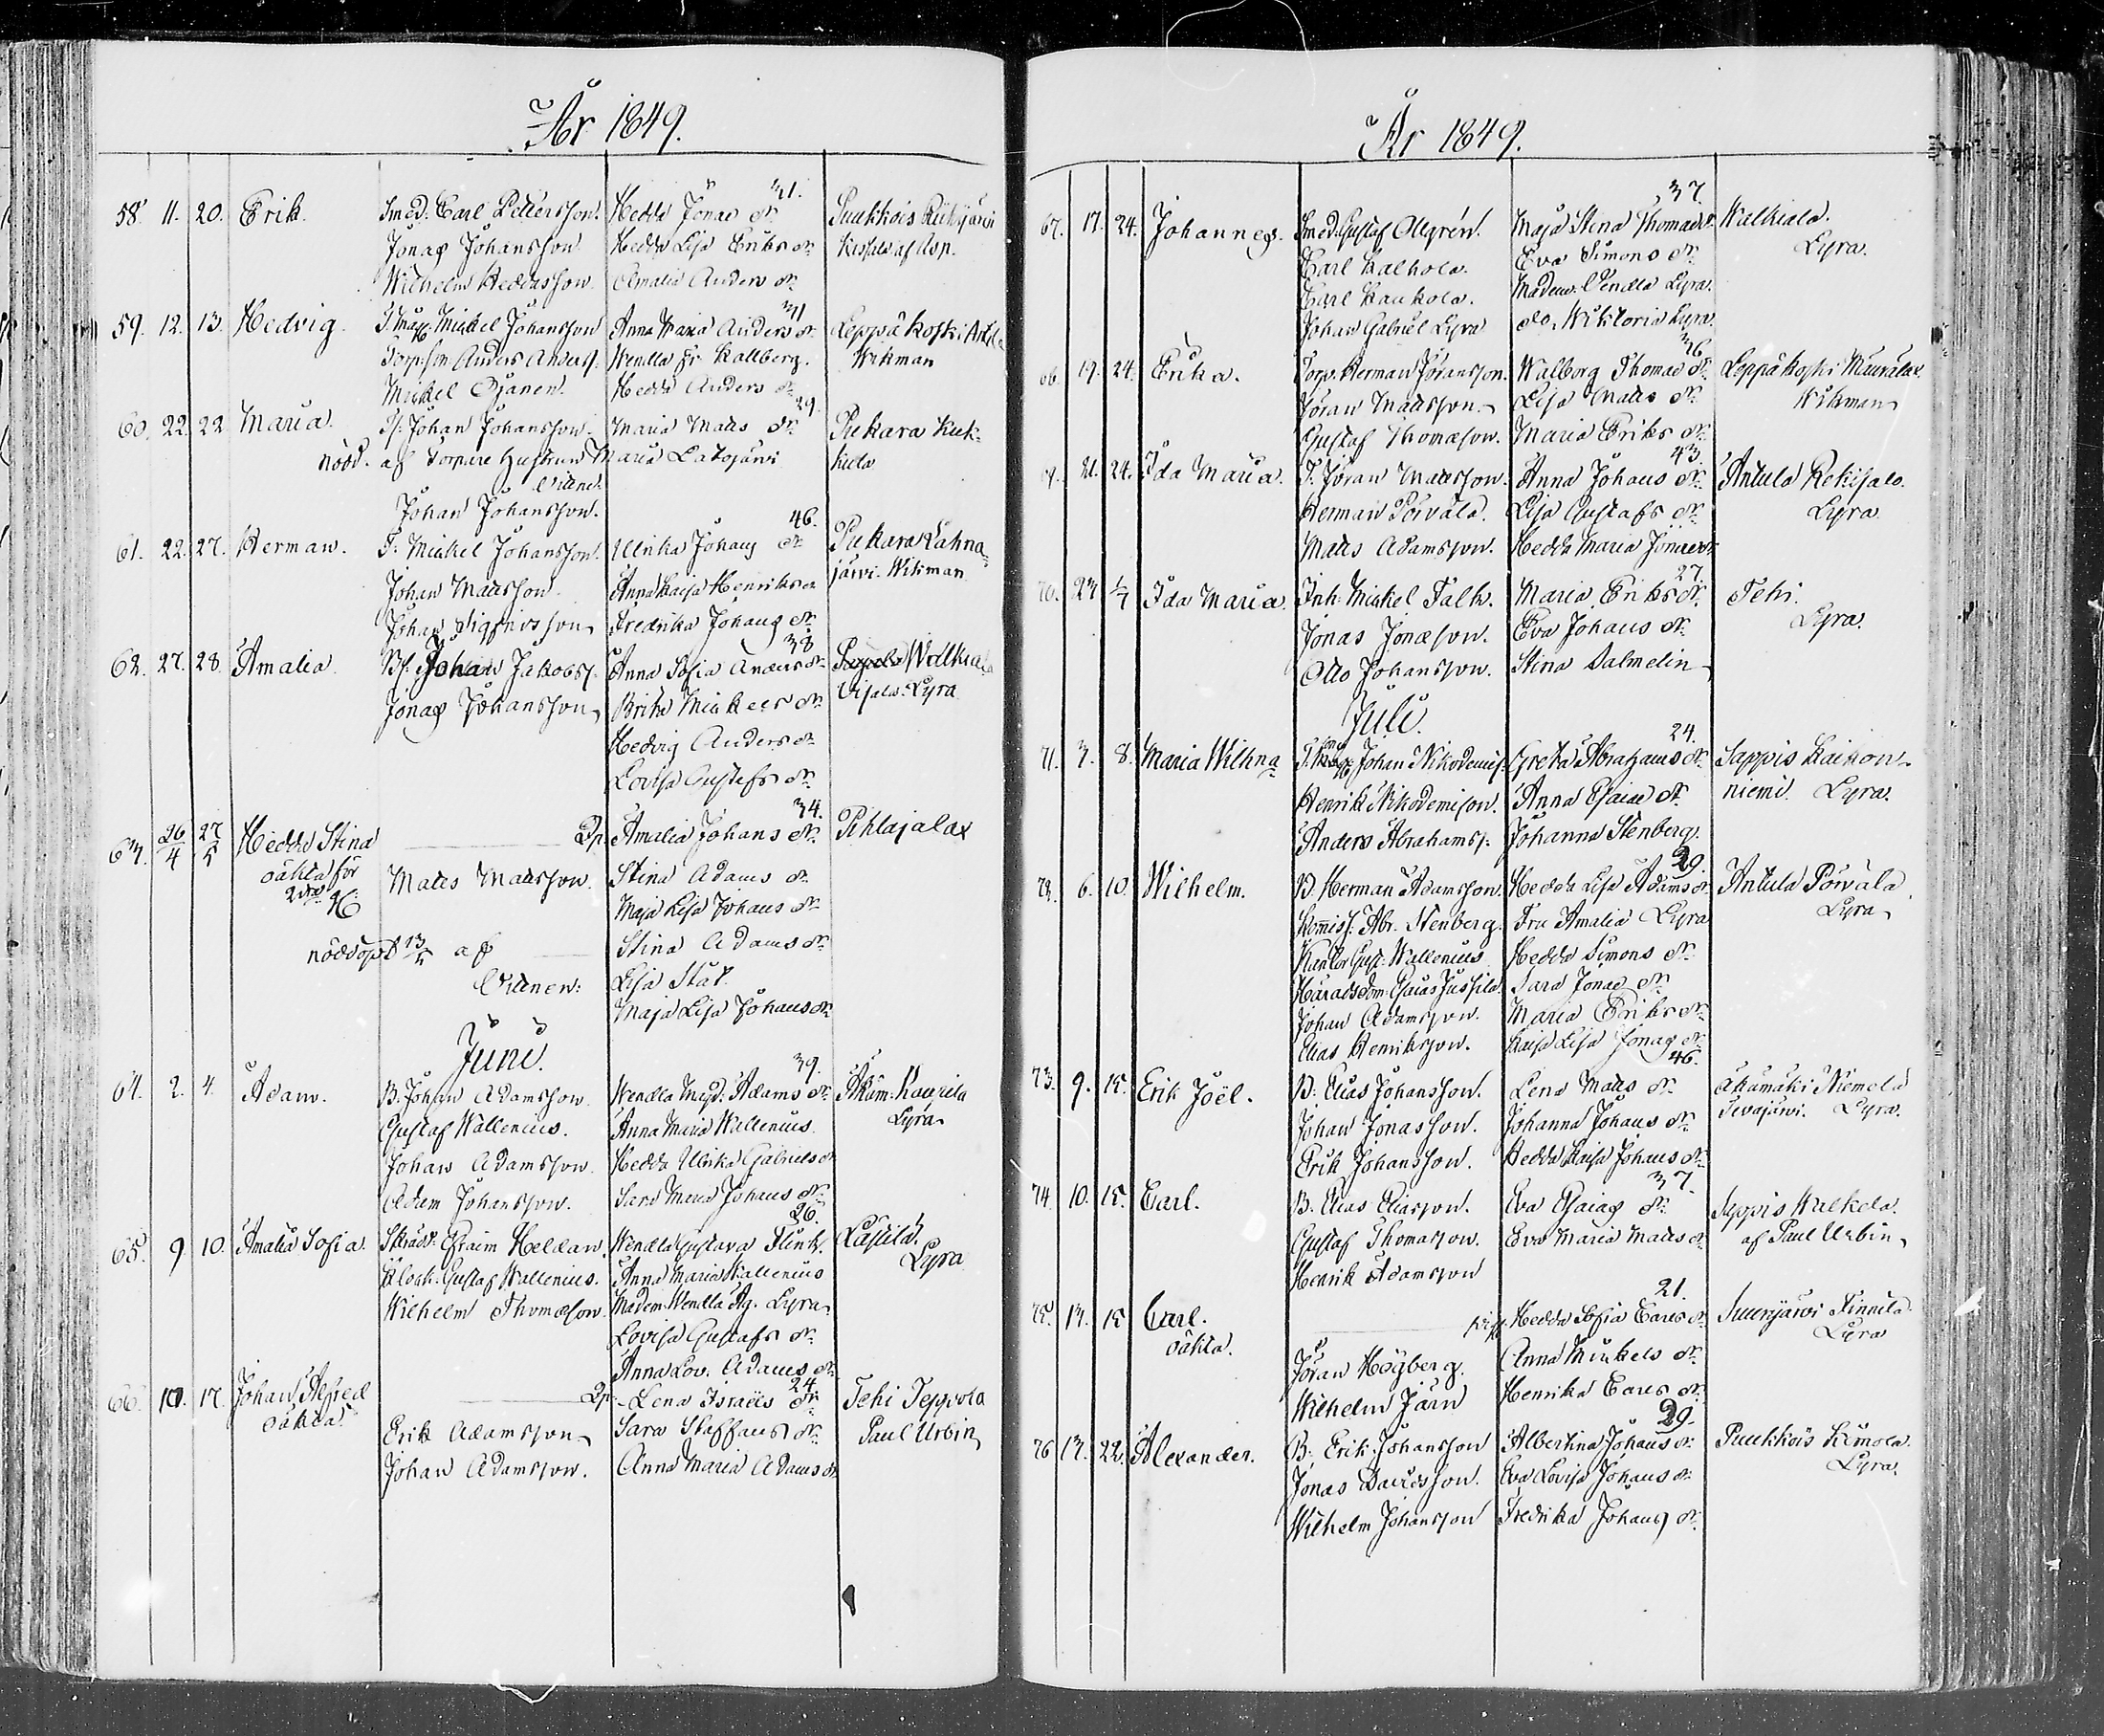 År 1849.
31.
58. 11. 20. Erik. Smed. Carl Pettersson. Hedda Jonas dr Puukkois Riihijärvi
Jonas Johansson Hedda Lisa Eriks dr af Asp.
Wilhelm Heddasson. Amalia Anders dr
31
59. 12. 13. Hedvig. Mickel Johansson Anna Maria Anders dr Leppäkoski
Torp:son Anders Anderss. Wendla fr. Kallberg. Wikman
Mickel Ojanen. Hedda Anders dr
29.
60. 22. 22 Maria. Johan Johansson. Maria Mats dr Pukara Kuk-
nödd. af Torpare hustrun Maria Latojärvi kula
Vittne:
Johan Johansson.
46.
61. 22. 27. Herman. T. Mickel Johansson. Ulrika Johans dr Pukara Lahna-
Johan Matsson Anna Kaisa Henriks dr järvi. Wikman
Johan Sigfridsson Fredrika Johans dr
38
62. 27. 28. Amalia. Johan Jakobss. Anna Sofia Anders dr Wallkiala
Jonas Johansson Brita Mickels dr Lyra
Hedvig Anders dr
Lovisa Gustafs dr
34.
63. 26/4 27/5 Hedda Stina Amalia Johans dr Pihlajalax
oäkta för Matts Mattsson. Stina Adams dr
2dra Maja Lisa Johans dr
nöddöpt 13/5 af Stina Adams dr
Vittnen: Lisa Stål
Maja Lisa Johans dr
Juni.
39.
64. 2. 4. Adam. B. Johan Adamsson. Wendla Magd: Adams dr Kaurila
Gustaf Wallenius. Anna Maria Wallenius. Lyra
Johan Adamsson. Hedda Ulrika Gabriels dr
Adam Johansson. Sara Maria Johans dr
26.
65. 9 10. Amalia Sofia. Skrädd. Efraim Heldan. Wendla Gustava Flink. Lassila.
Klock. Gustaf Wallenius. Anna Maria Wallenius Lyra
Wilhelm Thomasson. Madem. Wendla Ag. Lyra
Lovisa Gustafs dr
Anna Lov. Adams dr
24
66. 10. 17. Johan Alfred Lena Israels dr Tehi Teppola
oäkta. Erik Adamsson Sara Staffans dr Paul Urbin
Johan Adamsson. Anna Maria Adams dr
År 1849.
37.
67. 17. 24. Johannes. Smed. Gustaf Ollgrén. Maja Stina Thomas dr Walkiala.
Carl Kalhola. Eva Simons dr Lyra.
Carl Kaukola. Madem. Vendla Lyra.
Johan Gabriel Lyra do. Wiktoria Lyra.
36
68. 19. 24. Erika. Torp. Herman Jöransson. Walborg Thomas dr Leppäkoski
Jöran Mattsson Lisa Matts dr Wikman
Gustaf Thomasson. Maria Eriks dr
43.
69. 21. 24. Ida Maria. T. Jöran Mattsson. Anna Johans dr Antula Rekisalo.
Herman Poivala. Lisa Gustafs dr Lyra
Matts Adamsson. Hedda Maria
27.
70. 23 1/7 Ida Maria. Inh. Mickel Falk. Maria Eriks dr Tehi.
Jonas Jonasson. Eva Johans dr Lyra.
Otto Johansson. Stina Salmelin
Juli.
24.
71. 3. 8. Maria Wilhna Johan Nikodemiss. Greta Abrahams dr Sappis Kaikon-
Henrik Nikodemisson. Anna Esaias dr niemi. Lyra.
Anders Abrahamss. Johanna Stenberg.
29.
72. 6. 10. Wilhelm. B. Herman Adamsson. Hedda Lisa Adams dr Antula Poivala
Kommiss. Abr. Stenberg. Fru Amalia Lyra Lyra
Kantor Gust. Wallenius Hedda Simons dr
Häradsdom. Esaias Jussila. Sara Jonas dr
Johan Adamsson. Maria Eriks dr
Elias Henriksson. Kaisa Lisa Jonas dr
46.
73. 9. 15. Erik Joël. B. Elias Johansson. Lena Matts dr Akamäki Niemelä
Johan Jonasson. Johanna Johans dr Lyra.
Erik Johansson. Hedda Kaisa Johans dr
37.
74. 10. 15. Carl. B. Elias Eliasson. Eva Esaias dr Seppis Walkela
Gustaf Thomasson. Eva Maria Matts dr af Paul Urbin
Henrik Adamsson
21.
75. 13. 15 Carl. Pig. Hedda Sofia Carls dr Suurijärvi Finnilä
oäkta. Jöran Högberg. Anna Mickels dr Lyra
Wilhelm Järn Henrika Carls dr
29.
76 17. 22. Alexander. B. Erik Johansson Albertina Johans dr Puukkois Kimola.
Jonas Davidsson. Eva Lovisa Johans dr Lyra.
Wilhelm Johansson Fredrika Johans dr